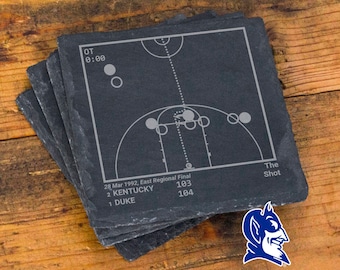 OT
0:00
28 Mar 1992, East Regional Final
2 KENTUCKY 103
1 DUKE 104
The
Shot